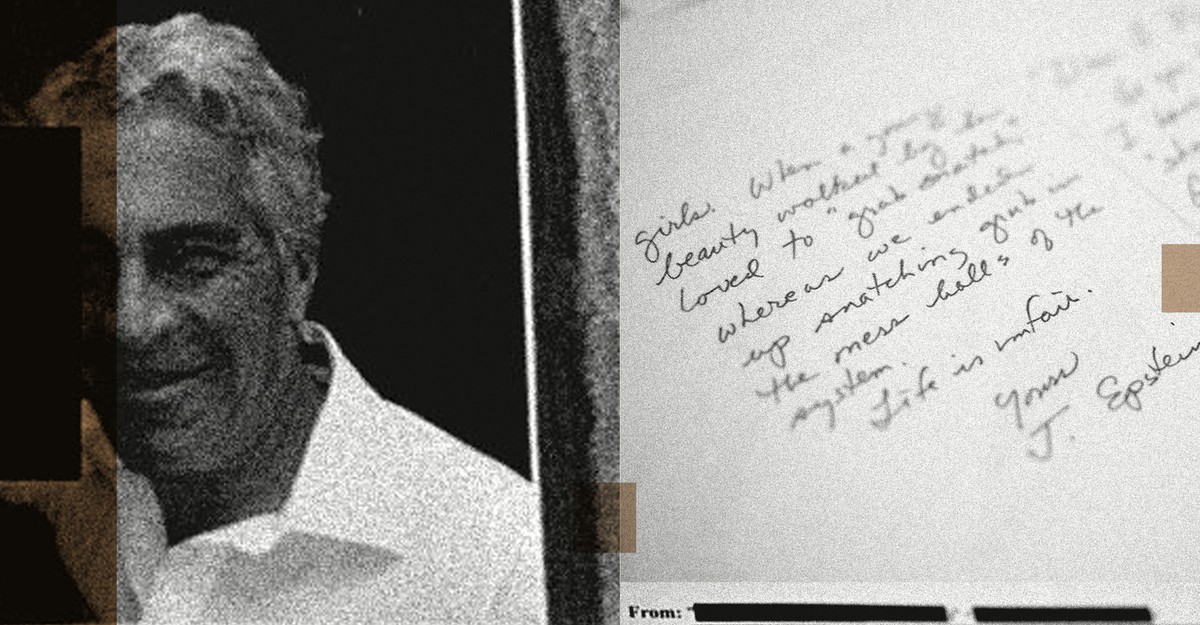 girls. When a young
beauty walked by he
loved to "grab snatch,"
whereas we ended
up snatching grub in
the mess halls of the
system.
Life is unfair.
Yours
J. Epstein
From: "